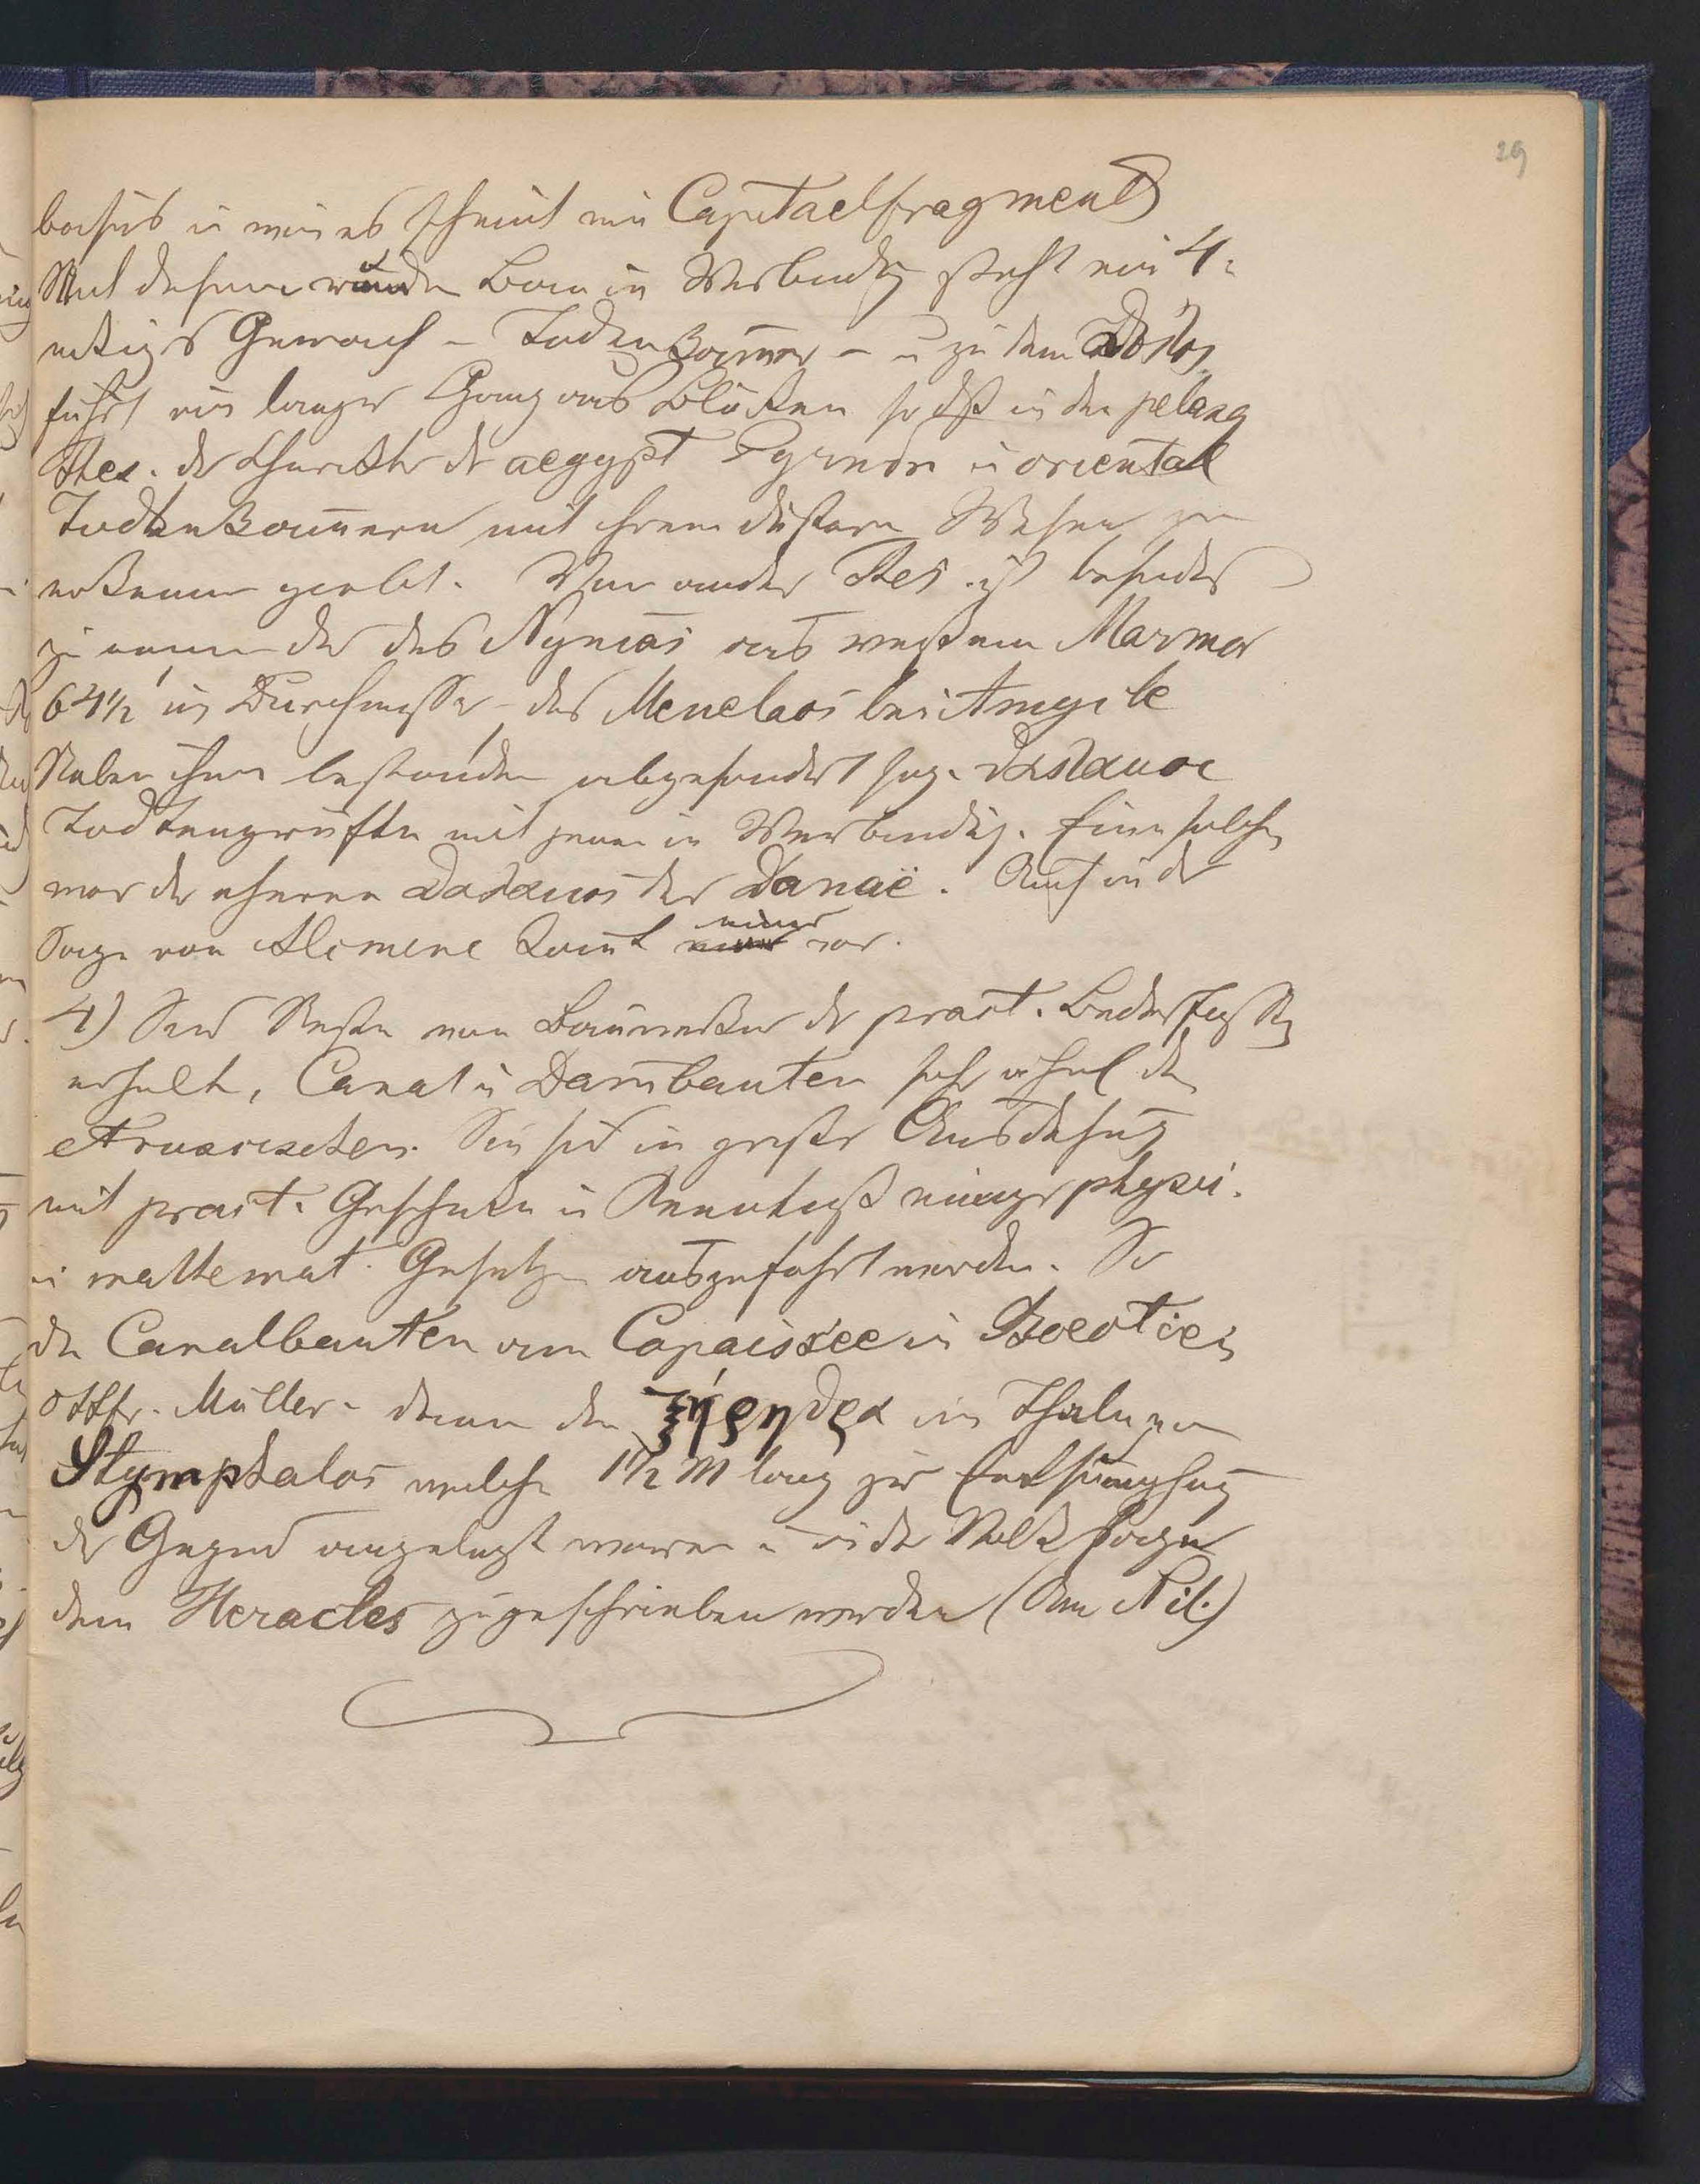 29
basis u wie es scheint ein Capitaelfragment)
Mit diesem runden Bau in Verbindg steht ein 4=
eckiges Gemach – Todtenkam̄er – u zu dem θόλος
führt ein langer Gang aus Blöcken so dß in den pelasg
Thes. der Charakter der aegypt u oriental
Todtenkam̄ern mit ihrem düstern Wesen zu
erkennen giebt. Von andern Thes. ist besonders
zu nennen der des Mynias aus weißem Marmor
64½' im Durchmesser – des Menelaos bei Amycle
Neben ihnen bestanden abgesondert sog. θάλαμοι
Todtengrüfte mit jenen in Verbindg. Eine solche
war der eherne θάλαμος der Danaë. Auch in der
Sage von Alcmene kom̄t einer vor.
4) Sind Reste von Bauwerken der pract. Bedürfnisse
erhalten, Canal u Dam̄bauten sehr ähnl den
etruskischen. Sie sind in großer Ausdehng
mit pract. Geschick u Kenntniß einiger physi.
u mathemat. Gesetze ausgeführt worden. So
die Canalbauten am Copaissee in Boeotien
Ottfr. Müller – dann die ζέρεθρα im Thale von
Stymphalos welche 1½ M lang zur Entsumpfung
der Gegend angelegt waren u in der Volkssage
dem Heracles zugeschrieben werden (Am Nil.)